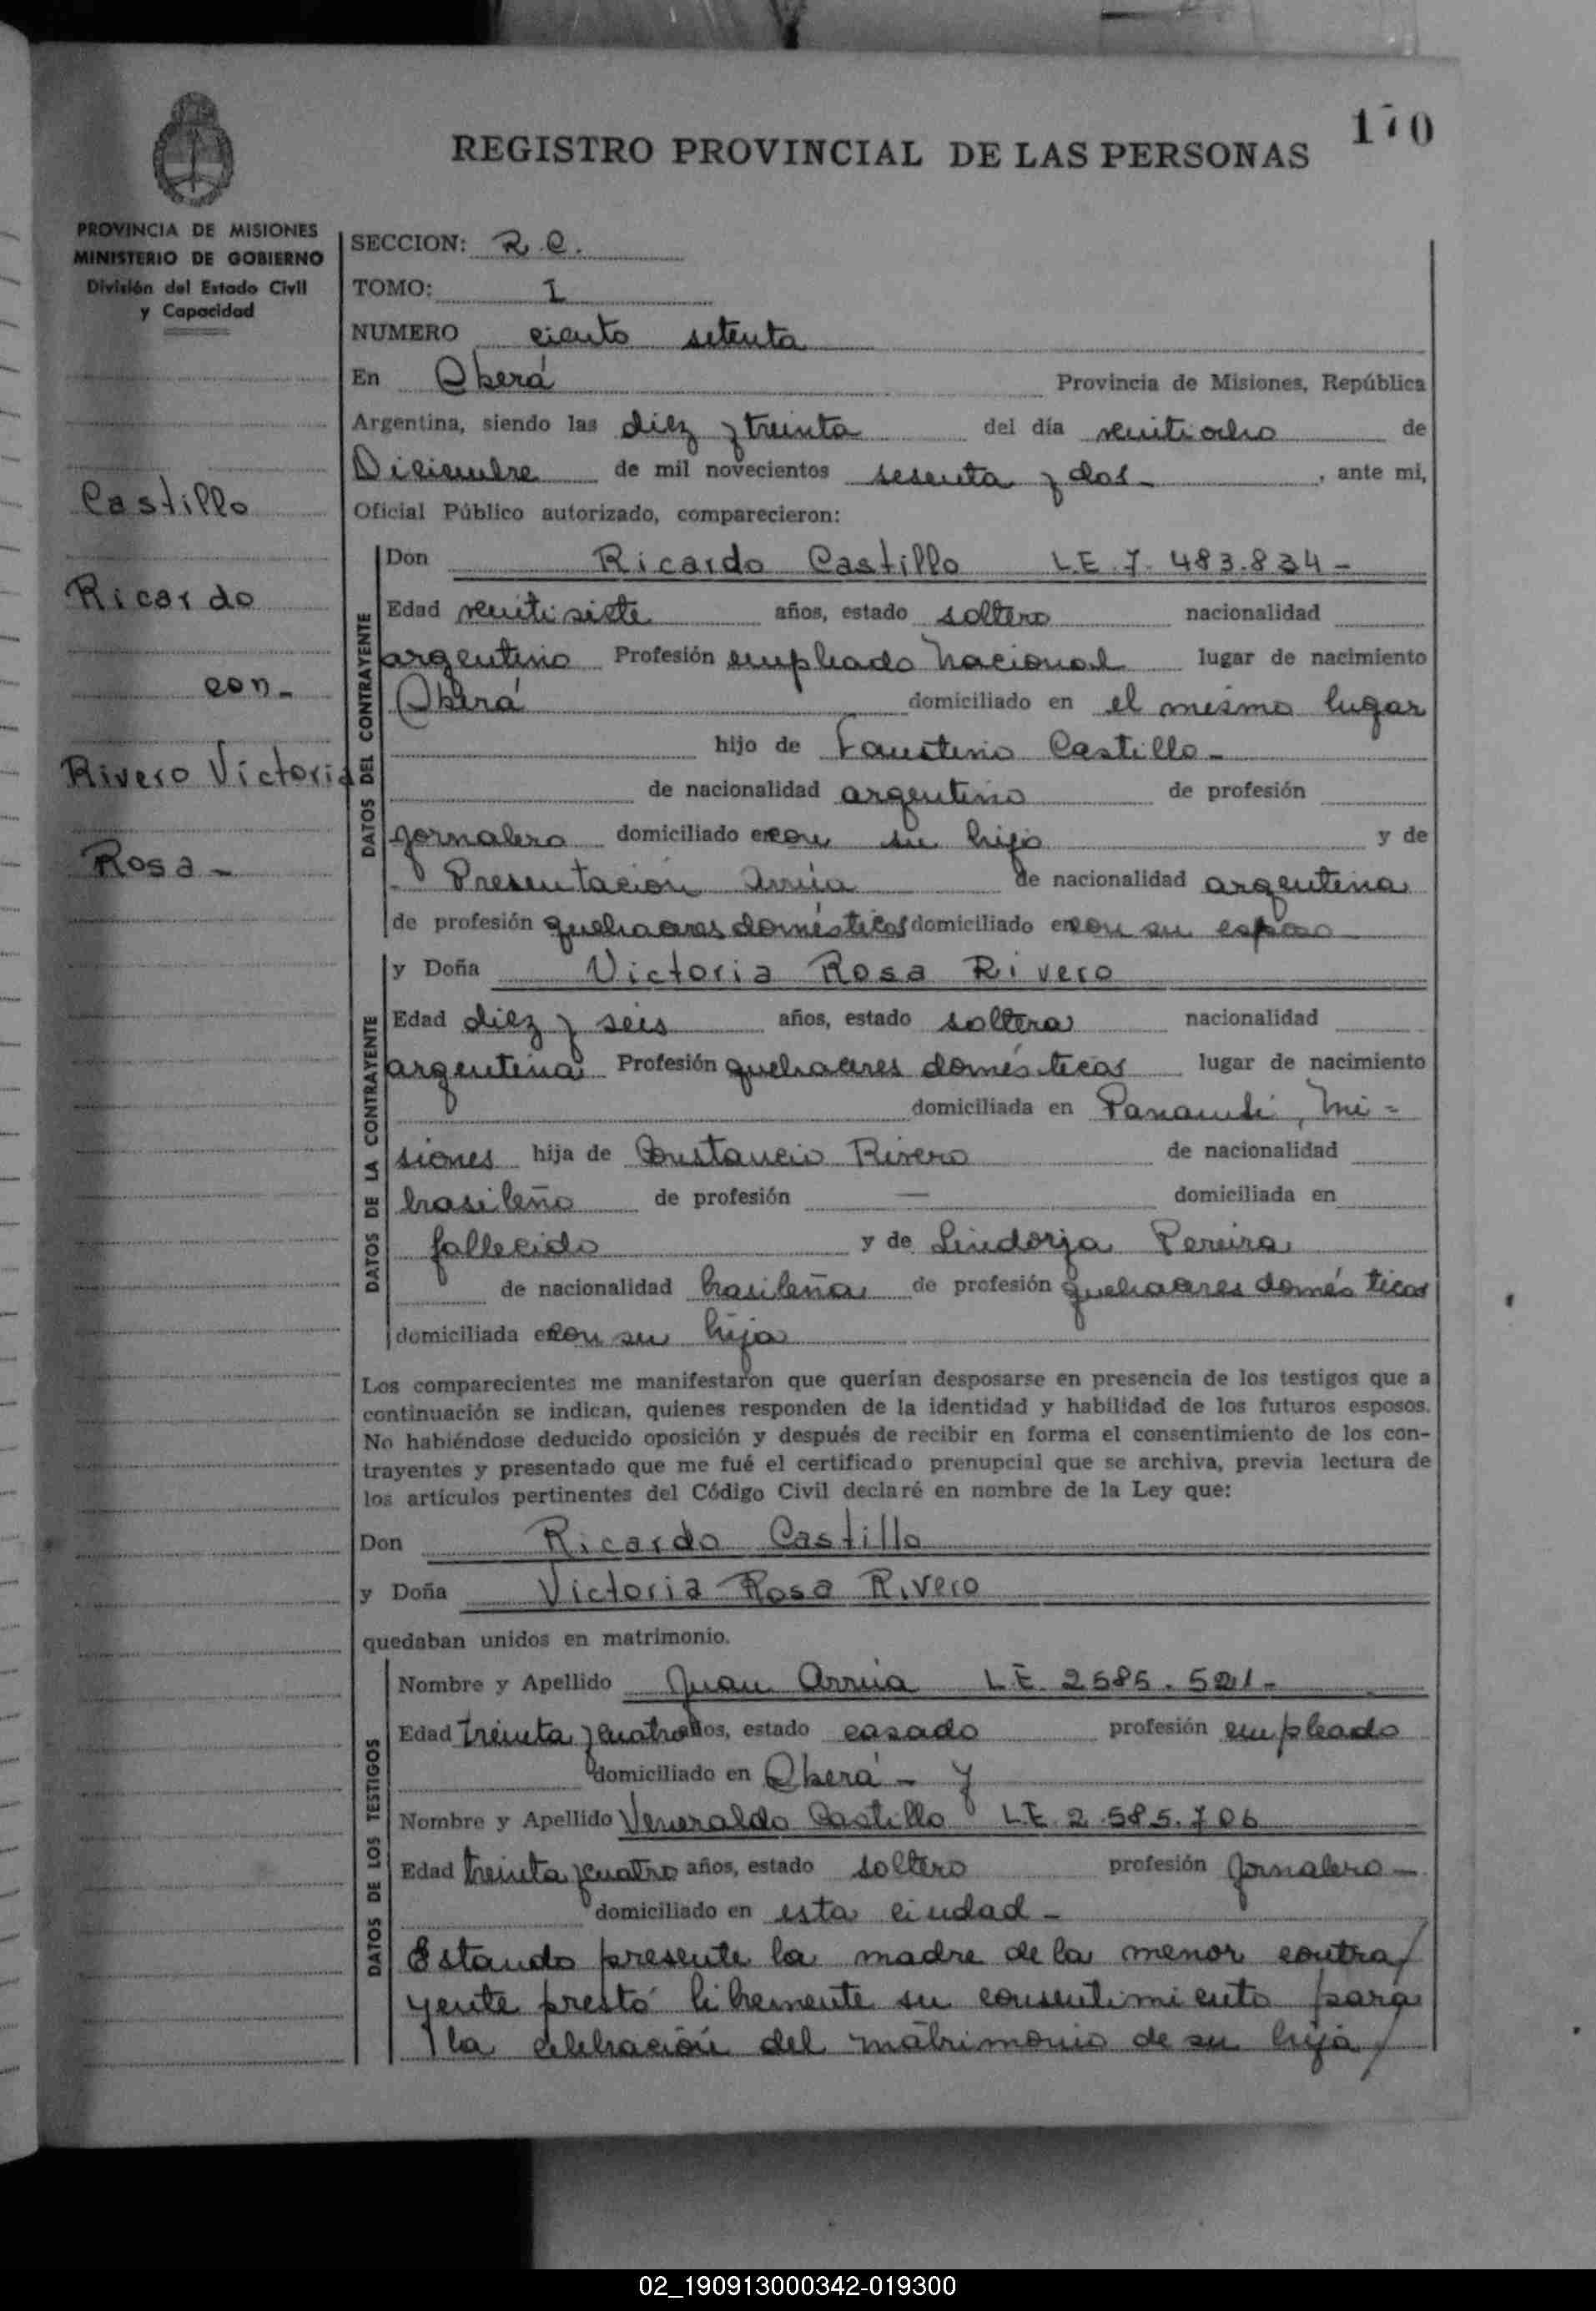 170
REGISTRO PROVINCIAL DE LAS PERSONAS
PROVINCIA DE MISIONES
MINISTERIO DE GOBIERNO
División del Estado Civil
y Capacidad
Castillo
Ricardo
con-
Rivero Victoria
Rosa-
SECCION: R.C.
TOMO: I
NUMERO ciento setenta
En Oberá Provincia de Misiones, República
Argentina, siendo las diez y treinta del día veintiocho de
Diciembre de mil novecientos sesenta y dos- , ante mi,
Oficial Público autorizado, comparecieron:
DATOS DEL CONTRAYENTE
Don Ricardo Castillo L.E. 7. 483.834-
Edad veintisiete años, estado soltero nacionalidad
argentino Profesión empleado Nacional lugar de nacimiento
Oberá domiciliado en el mismo lugar
hijo de Faustino Castillo-
de nacionalidad argentino de profesión
jornalero domiciliado en con su hijo y de
- Presentación Arrúa de nacionalidad argentina
de profesión quehaceres domésticos domiciliado en con su esposo
DATOS DE LA CONTRAYENTE
y Doña Victoria Rosa Rivero
Edad diez y seis años, estado soltera nacionalidad
argentina Profesión quehaceres domésticos lugar de nacimiento
domiciliada en Panambí, Mi-
siones hija de Constancio Rivero de nacionalidad
brasileño de profesión — domiciliada en
fallecido y de Lindorja Pereira
de nacionalidad brasileña de profesión quehaceres domésticos
domiciliada en con su hija
Los comparecientes me manifestaron que querían desposarse en presencia de los testigos que a
continuación se indican, quienes responden de la identidad y habilidad de los futuros esposos.
No habiéndose deducido oposición y después de recibir en forma el consentimiento de los con-
trayentes y presentado que me fué el certificado prenupcial que se archiva, previa lectura de
los artículos pertinentes del Código Civil declaré en nombre de la Ley que:
Don Ricardo Castillo
y Doña Victoria Rosa Rivero
quedaban unidos en matrimonio.
DATOS DE LOS TESTIGOS
Nombre y Apellido Juan Arrúa L.E. 2585.521-
Edad treinta y cuatro años, estado casado profesión empleado
domiciliado en Oberá - y
Nombre y Apellido Veneraldo Castillo L.E. 2.585.706
Edad treinta y cuatro años, estado soltero profesión jornalero-
domiciliado en esta ciudad-
Estando presente la madre de la menor contra/
yente prestó libremente su consentimiento para
la celebración del matrimonio de su hija/
02_190913000342-019300